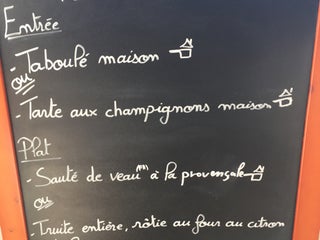 Entrée
- Taboulé maison
ou
- Tarte aux champignons maison
Plat
- Sauté de veau à la provençale
ou
- Truite entière, rôtie au four au citron